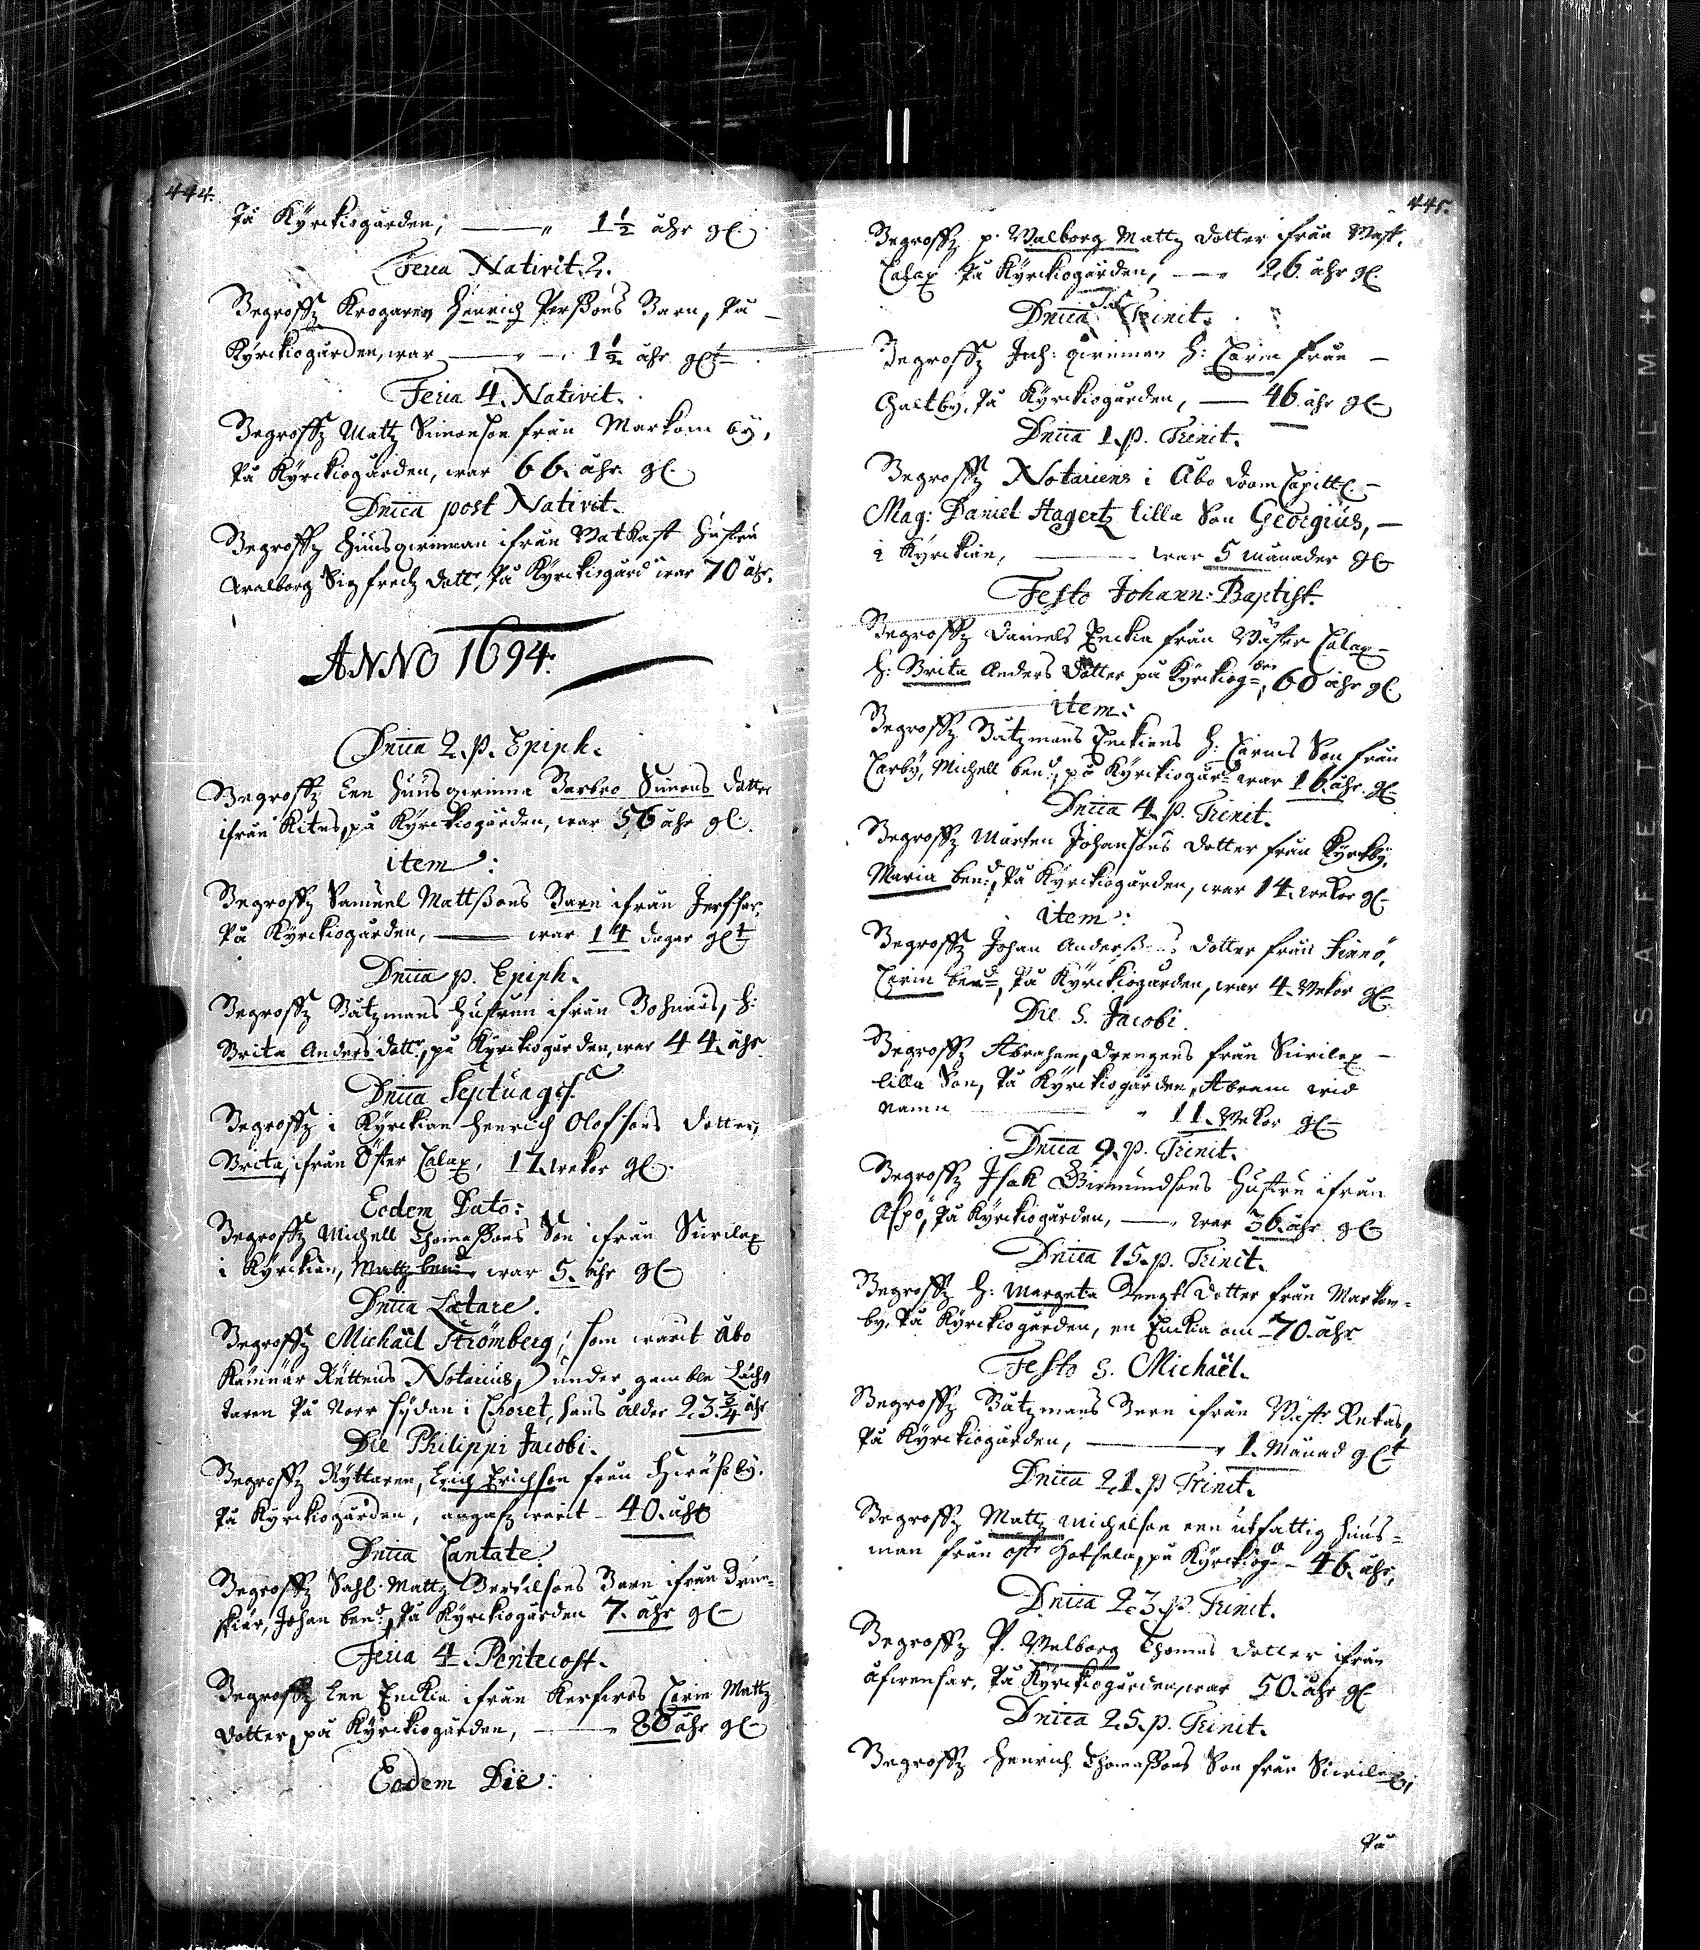 444.
På Kyrkiogården, 1½ åhr gl.
Feria Nativit. 2.
Begroffz Krogaren Henrich Perßons Barn, På
Kyrkiogården, war 1½ åhr glt
Feria 4. Nativit.
Begroffz Mattz Simonson från Markom by,
På Kyrkiogården, war 66. åhr gl.
Dnica post Nativit.
Begroffz huusqwinnan ifrån hustru
Walborg Sigfredz dottr, På Kyrkiogård war 70 åhr.
ANNO 1694.
Dnica 2. p. Epiph.
Begroffz een huusqwinna Barbro Simons dotter
ifrån Kitus, på Kyrkiogården, war 56 åhr gl.
item:
Begroffz Samuel Mattßons Barn ifrån
På Kyrkiogården, war 14 dagar glt
Dnica p. Epiph.
Begroffz Båtzmans hustrun ifrån Bohnäs, h:
Brita Anders dottr, på Kyrkiogården, war 44. åhr
Dnica Septuages.
Begroffz i Kyrkian Henrich Olofsons dotter,
Brita, ifrån Öster Calax, 17. wekor gl.
Eodem Dato:
Begroffz Michell Thomaßons Son ifrån Siwilax
i Kyrkian, Mattz bend war 5. åhr gl
Dnica Lætare.
Begroffz Michaël Strömberg, som warit Åbo
Kämnär Rättens Notarius, under gamble
På Norr sydan i Choret, hans ålder 23¾ åhr
Die Philippi Jacobi.
Begroffz Ryttaren, Erich Erichson från
På Kyrkiogården, warit 40. åhr
Dnica Cantate.
Begroffz Sahl. Mattz Bertilsons Barn ifrån Brun-
skiär, Johan bend, På Kyrkiogården 7. åhr gl
Feria 4. Pentecost.
Begroffz een Enckia ifrån Carin Mattz
dotter, på Kyrkiogården, 80 åhr gl
Eodem Die:
445.
Begroffz p. Walborg Mattz dotter ifrån Wäst.
Calax På Kyrkiogården, 26. åhr gl.
Dnica Trinit.
Begroffz qwinnan h: Carin från
Galtby, På Kyrkiogården, 46. åhr gl
Dnica 1. p. Trinit.
Begroffz Notariens i Åbo Doom Capittl.
Mag: Daniel Hagertz lilla Son Georgius,
i Kyrkian, war 5 månader gl
Festo Johann: Baptist.
Begroffz Daniels Enckia från Wäster Calax
h: Brita Anders Dotter på Kyrkiog=den, 60 åhr gl
item:
Begroffz Båtzmans Enckians h: Carins Son från
Carby, Michell bend, på Kyrkiogård war 16. åhr. gl
Dnica 4. p. Trinit.
Begroffz Mårten Johansons dotter från Kyrkby,
Maria bend, På Kyrkiogården, war 14. wekor gl
item:
Begroffz Johan dotter från Finnö,
Carin bend, På Kyrkiogården, war 4. Wekor gl
Die S. Jacobi.
Begroffz Abraham, drengens från Siwilax
lilla Son, På Kyrkiogården, Abram wid
namn 11. Wekor gl
Dnica 9. p. Trinit.
Begroffz Isak hustru ifrån
Aspö, På Kyrkiogården, war 36. åhr gl
Dnica 15. p. Trinit.
Begroffz h: Margeta Bengts Dotter från Markom-
by, På Kyrkiogården, en Enckia om 70. åhr
Festo S. Michaël.
Begroffz Båtzmans Barn ifrån Wäst. Retais,
På Kyrkiogården, 1. Månad glt
Dnica 21. p Trinit.
Begroffz Mattz Michelson een utfattig huus-
man från öst. på Kyrkiog 46. åhr,
Dnica 23. p. Trinit.
Begroffz P. Walborg Thomas dotter ifrån
På Kyrkiogården, war 50. åhr gl
Dnica 25. p. Trinit.
Begroffz Henrich Thomaßons Son från Siwilax,
På
KODAK SAFETY FILM